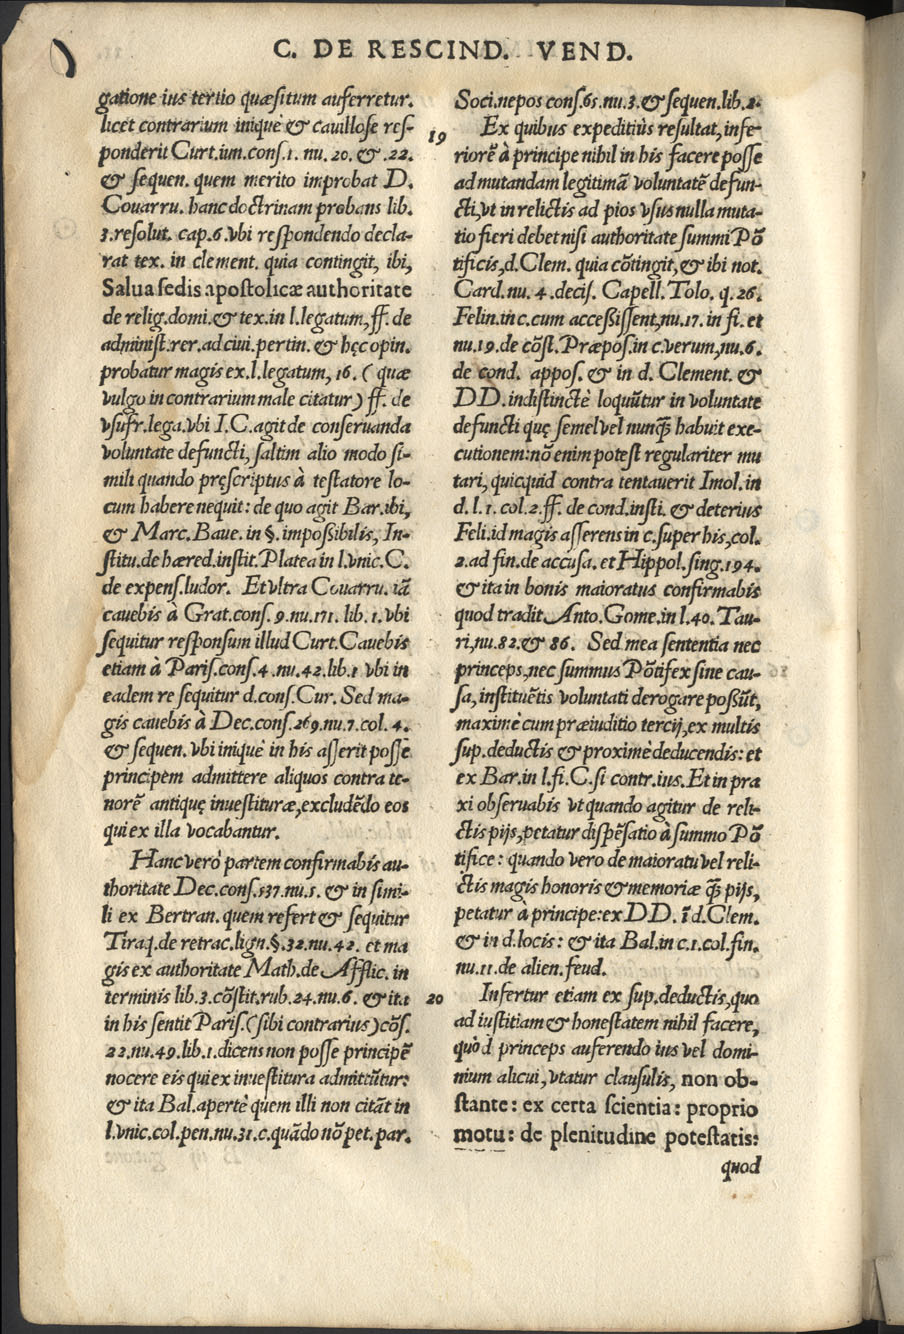 C. DE RESCIND. VEND.
gatione ius tertio quæsitum auferretur.
licet contrarium iniquè & cauillose res-
ponderit Curt.iun.cons.1. nu. 20. & .22.
& sequen. quem merito improbat D.
Couarru. hanc doctrinam probans lib.
3.resolut. cap.6.vbi respondendo decla-
rat tex. in clement. quia contingit, ibi,
Salua sedis apostolicæ authoritate
de relig.domi.& tex.in l.legatum, ff. de
administ.rer.ad ciui.pertin. & hęc opin.
probatur magis ex.l.legatum, 16. ( quæ
vulgo in contrarium male citatur) ff. de
vsufr.lega.vbi I.C.agit de conseruanda
voluntate defuncti, saltim alio modo si-
mili quando pręscriptus à testatore lo-
cum habere nequit: de quo agit Bar.ibi,
& Marc. Baue. in §. impoßibilis, In-
stitu.de hæred.instit.Platea in l.vnic.C.
de expens.ludor. Et vltra Couarru. iā
cauebis à Grat.cons.9.nu.171. lib. 1.vbi
sequitur responsum illud Curt.Cauebis
etiam à Paris.cons.4.nu.42.lib.1 vbi in
eadem re sequitur d.cons.Cur. Sed ma-
gis cauebis à Dec.cons.269.nu.7.col. 4.
& sequen. vbi iniquè in his asserit posse
principem admittere aliquos contra te-
norē antiquę inuestituræ,excludēdo eos
qui ex illa vocabantur.
Hanc verò partem confirmabis au-
thoritate Dec.cons.537.nu.5. & in simi-
li ex Bertran. quem refert & sequitur
Tiraq.de retrac.lign.§.32.nu.42. et ma
gis ex authoritate Math.de Afflic. in
terminis lib.3.cōstit.rub.24.nu.6. & ita
in his sentit Paris.(sibi contrarius)cōs.
22.nu.49.lib.1.dicens non posse principē
nocere eis qui ex inuestitura admittūtur:
& ita Bal.apertè quem illi non citāt in
l.vnic.col.pen.nu.31.c.quādo nō pet.par.
Soci.nepos cons.65.nu.3.& sequen.lib.2.
19 Ex quibus expeditiùs resultat, infe-
riorē à principe nihil in his facere posse
ad mutandam legitimā voluntatē defun-
cti,vt in relictis ad pios vsus nulla muta-
tio fieri debet nisi authoritate summi Pō
tificis,d.Clem. quia cōtingit,& ibi not.
Card.nu. 4.decis. Capell.Tolo. q.26.
Felin.in c.cum acceßissent,nu.17. in fi. et
nu.19.de cōst.Præpos.in c.verum,nu.6.
de cond. appos. & in d. Clement. &
DD.indistinctè loquūtur in voluntate
defuncti quę semel vel nunq̄ habuit exe-
cutionem:nō enim potest regulariter mu
tari, quicquid contra tentauerit Imol.in
d. l. 1. col.2.ff. de cond.insti. & deterius
Feli.id magis asserens in c.super his,col.
2.ad fin.de accusa. et Hippol.sing.194.
& ita in bonis maioratus confirmabis
quod tradit Anto.Gome.in l.40. Tau-
ri,nu.82.& 86. Sed mea sententia nec
princeps,nec summus Pōtifex sine cau-
sa, instituētis voluntati derogare poßūt,
maximè cum præiuditio tercij, ex multis
sup.deductis & proximè deducendis: et
ex Bar.in l.fi.C.si contr.ius. Et in pra
xi obseruabis vt quando agitur de reli-
ctis pijs,petatur dispēsatio à summo Pō
tifice : quando vero de maioratu vel reli-
ctis magis honoris & memoriæ q̄ pijs,
petatur à principe:ex DD. ī d.Clem.
& in d.locis: & ita Bal.in c.1.col.fin.
nu.11.de alien.feud.
20 Infertur etiam ex sup.deductis,quo
ad iustitiam & honestatem nihil facere,
quòd princeps auferendo ius vel domi-
nium alicui,vtatur clausulis, non ob-
stante: ex certa scientia: proprio
motu: de plenitudine potestatis:
quod